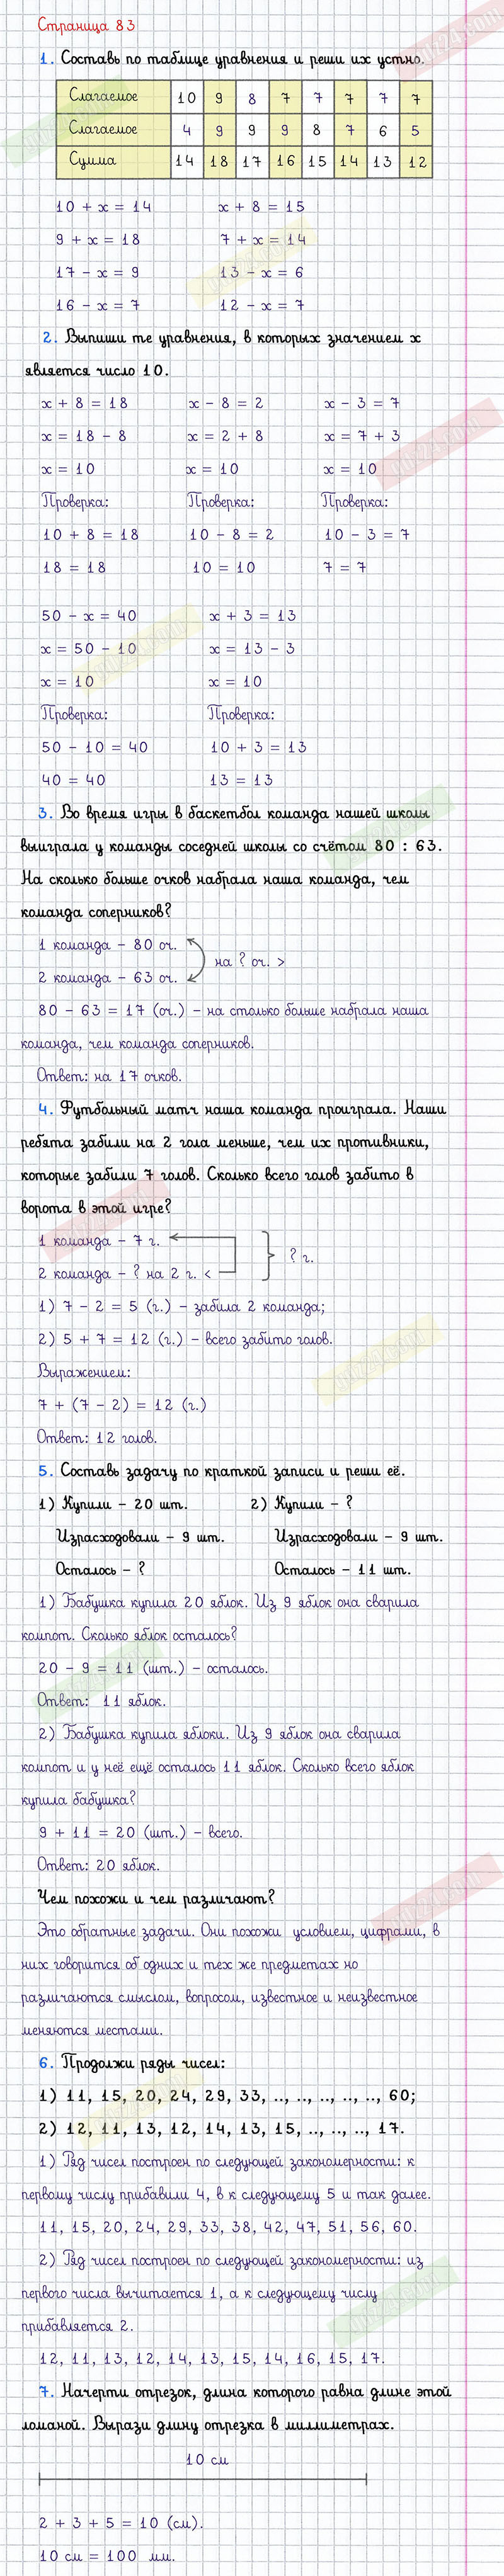 Страница 83
1. Составь по таблице уравнения и реши их устно.
Слагаемое 10 9 8 7 7 7 7 7
Слагаемое 4 9 9 9 8 7 6 5
Сумма 14 18 17 16 15 14 13 12
10 + x = 14 x + 8 = 15
9 + x = 18 7 + x = 14
17 - x = 9 13 - x = 6
16 - x = 7 12 - x = 7
2. Выпиши те уравнения, в которых значением x
является число 10.
x + 8 = 18 x - 8 = 2 x - 3 = 7
x = 18 - 8 x = 2 + 8 x = 7 + 3
x = 10 x = 10 x = 10
Проверка: Проверка: Проверка:
10 + 8 = 18 10 - 8 = 2 10 - 3 = 7
18 = 18 10 = 10 7 = 7
50 - x = 40 x + 3 = 13
x = 50 - 10 x = 13 - 3
x = 10 x = 10
Проверка: Проверка:
50 - 10 = 40 10 + 3 = 13
40 = 40 13 = 13
3. Во время игры в баскетбол команда нашей школы
выиграла у команды соседней школы со счётом 80 : 63.
На сколько больше очков набрала наша команда, чем
команда соперников?
1 команда - 80 оч.
на ? оч. >
2 команда - 63 оч.
80 - 63 = 17 (оч.) - на столько больше набрала наша
команда, чем команда соперников.
Ответ: на 17 очков.
4. Футбольный матч наша команда проиграла. Наши
ребята забили на 2 гола меньше, чем их противники,
которые забили 7 голов. Сколько всего голов забито в
ворота в этой игре?
1 команда - 7 г.
? г.
2 команда - ? на 2 г. <
1) 7 - 2 = 5 (г.) - забила 2 команда;
2) 5 + 7 = 12 (г.) - всего забито голов.
Выражением:
7 + (7 - 2) = 12 (г.)
Ответ: 12 голов.
5. Составь задачу по краткой записи и реши её.
1) Купили - 20 шт. 2) Купили - ?
Израсходовали - 9 шт. Израсходовали - 9 шт.
Осталось - ? Осталось - 11 шт.
1) Бабушка купила 20 яблок. Из 9 яблок она сварила
компот. Сколько яблок осталось?
20 - 9 = 11 (шт.) - осталось.
Ответ: 11 яблок.
2) Бабушка купила яблоки. Из 9 яблок она сварила
компот и у неё ещё осталось 11 яблок. Сколько всего яблок
купила бабушка?
9 + 11 = 20 (шт.) - всего.
Ответ: 20 яблок.
Чем похожи и чем различают?
Это обратные задачи. Они похожи условием, цифрами, в
них говорится об одних и тех же предметах но
различаются смыслом, вопросом, известное и неизвестное
меняются местами.
6. Продолжи ряды чисел:
1) 11, 15, 20, 24, 29, 33, .., .., .., .., .., 60;
2) 12, 11, 13, 12, 14, 13, 15, .., .., .., 17.
1) Ряд чисел построен по следующей закономерности: к
первому числу прибавили 4, в к следующему 5 и так далее.
11, 15, 20, 24, 29, 33, 38, 42, 47, 51, 56, 60.
2) Ряд чисел построен по следующей закономерности: из
первого числа вычитается 1, а к следующему числу
прибавляется 2.
12, 11, 13, 12, 14, 13, 15, 14, 16, 15, 17.
7. Начерти отрезок, длина которого равна длине этой
ломаной. Вырази длину отрезка в миллиметрах.
10 см
2 + 3 + 5 = 10 (см).
10 см = 100 мм.